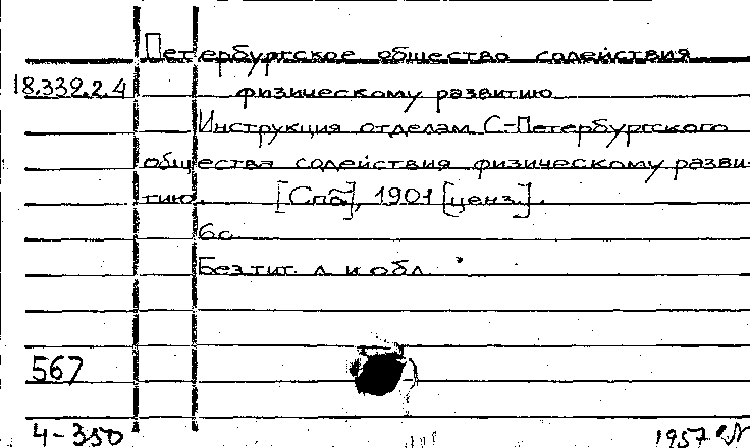 Петербургское общество содействия
18.339.2.4 физическому развитию
Инструкция отделам С-Петербургского
общества содействия физическому разви-
тию. [Спб], 1901 [ценз.].
6с
Без тит. л и обл
567
4-350 1957